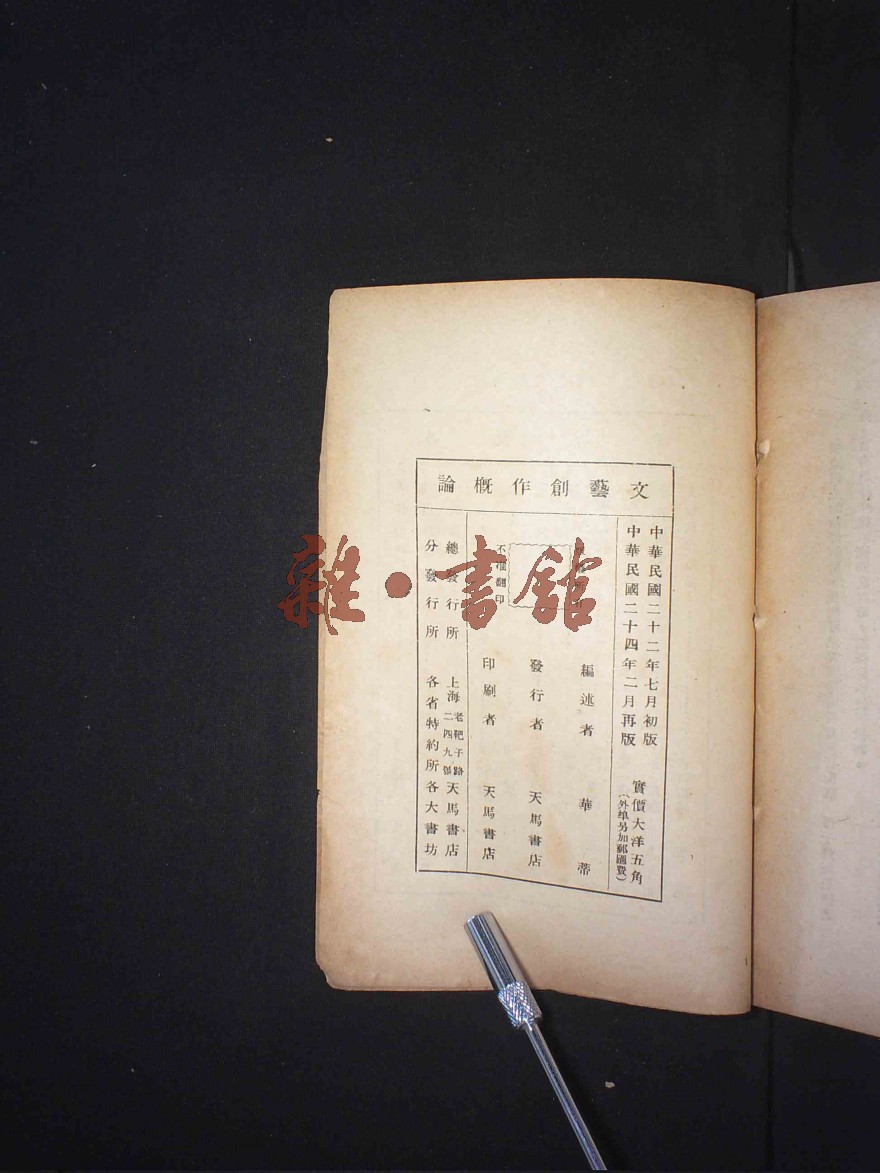 文藝創作概論
中華民國二十二年七月初版
中華民國二十四年二月再版
實價大洋五角
(外埠另加郵匯費)
編述者 華蒂
發行者 天馬書店
印刷者 天馬書店
不准翻印
總發行所 上海老靶子路二四九號天馬書店
分發行所 各省特約所各大書坊
雜·書館